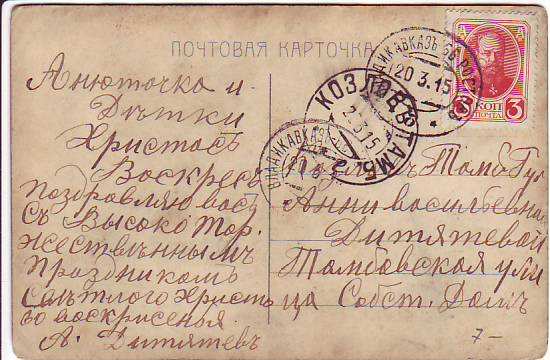 ПОЧТОВАЯ КАРТОЧКА
Анюточка и
Дѣтки
Христосъ
Воскресъ
поздровляю васъ
съ Высоко Тор
жественнымъ
Праздникомъ
Свѣтлого Христо
во воскрисенья
А. Дитятевъ
Козловъ Тамб Губ
Анни васильевни
Дитятевой
Тамбовская ули
ца Собст. Домъ
ВЛАДИКАВКАЗЪ
20 3.15
КОЗЛОВЪ ТАМБ
2.3.15
ВЛАДИКАВКАЗЪ
20
3 КОП 3
ПОЧТА
7-